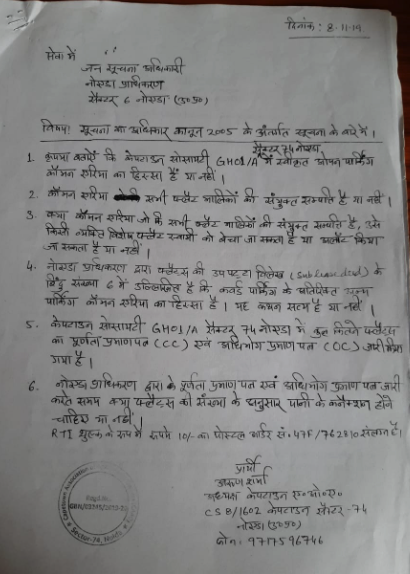 दिनांक : 8-11-19
सेवा में
जन सूचना अधिकारी
नोएडा प्राधिकरण
सैक्टर 6 नोएडा (उ०प्र०)
विषय: सूचना का अधिकार कानून 2005 के अंतर्गत सूचना के बारे में ।
सैक्टर 74 नोएडा
1. कृपया बतायें कि केपटाउन सोसायटी GH01/A में स्वीकृत ओपन पार्किंग
कॉमन एरिया का हिस्सा है या नहीं ।
2. कॉमन एरिया सभी फ्लैट मालिकों की संयुक्त सम्पत्ति है या नहीं ।
3. क्या कॉमन एरिया जो कि सभी फ्लैट मालिकों की संयुक्त सम्पत्ति है, उसे
किसी व्यक्ति विशेष फ्लैट स्वामी को बेचा जा सकता है या अलॉट किया
जा सकता है या नहीं ।
4. नोएडा प्राधिकरण द्वारा फ्लैट्स की उप पट्टा विलेख (Sub lease deed) के
बिंदु संख्या 6 में उल्लिखित है कि कवर्ड पार्किंग के अतिरिक्त अन्य
पार्किंग कॉमन एरिया का हिस्सा है । यह कथन सत्य है या नहीं ।
5. केपटाउन सोसायटी GH01/A सैक्टर 74 नोएडा में कुल कितने फ्लैट्स
का पूर्णता प्रमाण पत्र (CC) एवं अधिभोग प्रमाण पत्र (OC) जारी किया
गया है ।
6. नोएडा प्राधिकरण द्वारा के पूर्णता प्रमाण पत्र एवं अधिभोग प्रमाण पत्र जारी
करते समय क्या फ्लैट्स की संख्या के अनुसार पानी के कनैक्शन होने
चाहिए या नहीं ।
RTI शुल्क के रूप में रूपये 10/- का पोस्टल आर्डर सं० 47F/762810 संलग्न है ।
प्रार्थी
अरूण शर्मा
अध्यक्ष केपटाउन ए०ओ०ए०
CSB/1602 केपटाउन सैक्टर-74
नोएडा (उ०प्र०)
फोन : 9717596746
Sector-74, Noida